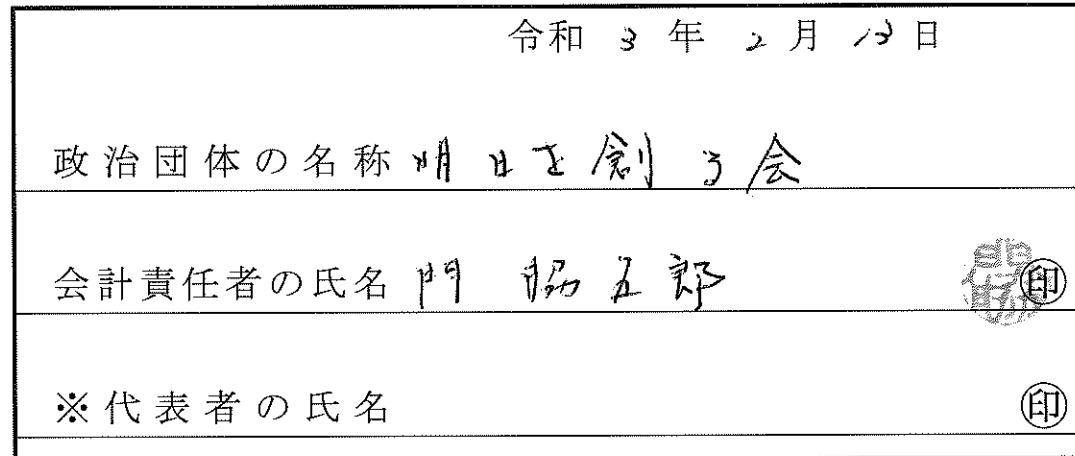 令和 3 年 2 月 13 日
政治団体の名称 明日を創る会
会計責任者の氏名 門脇五郎 ㊞
※代表者の氏名 ㊞